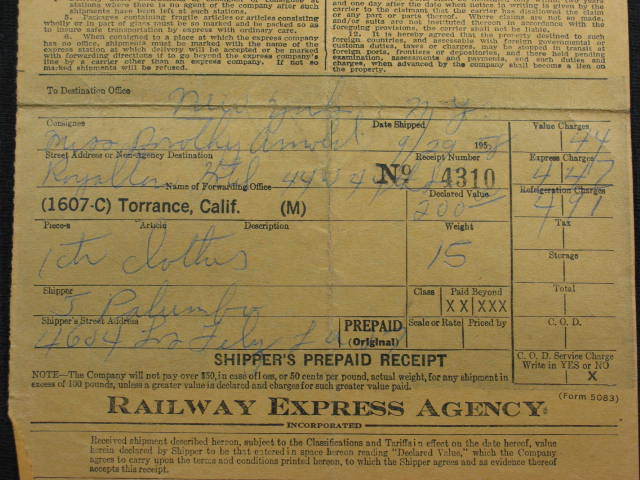 stations where there is no agent of the company after such
shipments have been left at such stations.
5. Packages containing fragile articles or articles consisting
wholly or in part of glass must be so marked and be packed so as
to insure safe transportation by express with ordinary care.
6. When consigned to a place at which the express company
has no office, shipments must be marked with the name of the
express station at which delivery will be accepted or be marked
with forwarding directions if to go beyond the express company's
line by a carrier other than an express company. If not so
marked shipments will be refused.
one day after the date when notice in writing is given by the
carrier to the claimant that the carrier has disallowed the claim
or any part or parts thereof. Where claims are not made,
and/or suits are not instituted thereon in accordance with the
foregoing provisions, the carrier shall not be liable.
12. It is hereby agreed that the property destined to such
foreign countries, and assessable with foreign governmental or
customs duties, taxes or charges, may be stopped in transit at
foreign ports, frontiers or depositories, and there held pending
examination, assessments and payments, and such duties and
charges, when advanced by the company shall become a lien on
the property.
To Destination Office
New York, N Y
Consignee
Date Shipped
Value Charges
Miss
9/29 195
44
Street Address or Non-Agency Destination
Receipt Number
Express Charges
Royalton Htl 44 W 44
No 4310
4 47
Name of Forwarding Office
Declared Value
Refrigeration Charges
(1607-C) Torrance, Calif. (M)
200
4 91
Tax
Pieces Article Description
Weight
1 ctn clothes
15
Storage
Shipper
Class Paid Beyond
Total
Palumbo
XX XXX
Shipper's Street Address
PREPAID
(Original)
Scale or Rate Priced by
C. O. D.
4604 Los Feliz L A
SHIPPER'S PREPAID RECEIPT
C. O. D. Service Charge
Write in YES or NO
X
NOTE—The Company will not pay over $50, in case of loss, or 50 cents per pound, actual weight, for any shipment in
excess of 100 pounds, unless a greater value is declared and charges for such greater value paid.
(Form 5083)
RAILWAY EXPRESS AGENCY
INCORPORATED
Received shipment described hereon, subject to the Classifications and Tariffs in effect on the date hereof, value
herein declared by Shipper to be that entered in space hereon reading "Declared Value," which the Company
agrees to carry upon the terms and conditions printed hereon, to which the Shipper agrees and as evidence thereof
accepts this receipt.